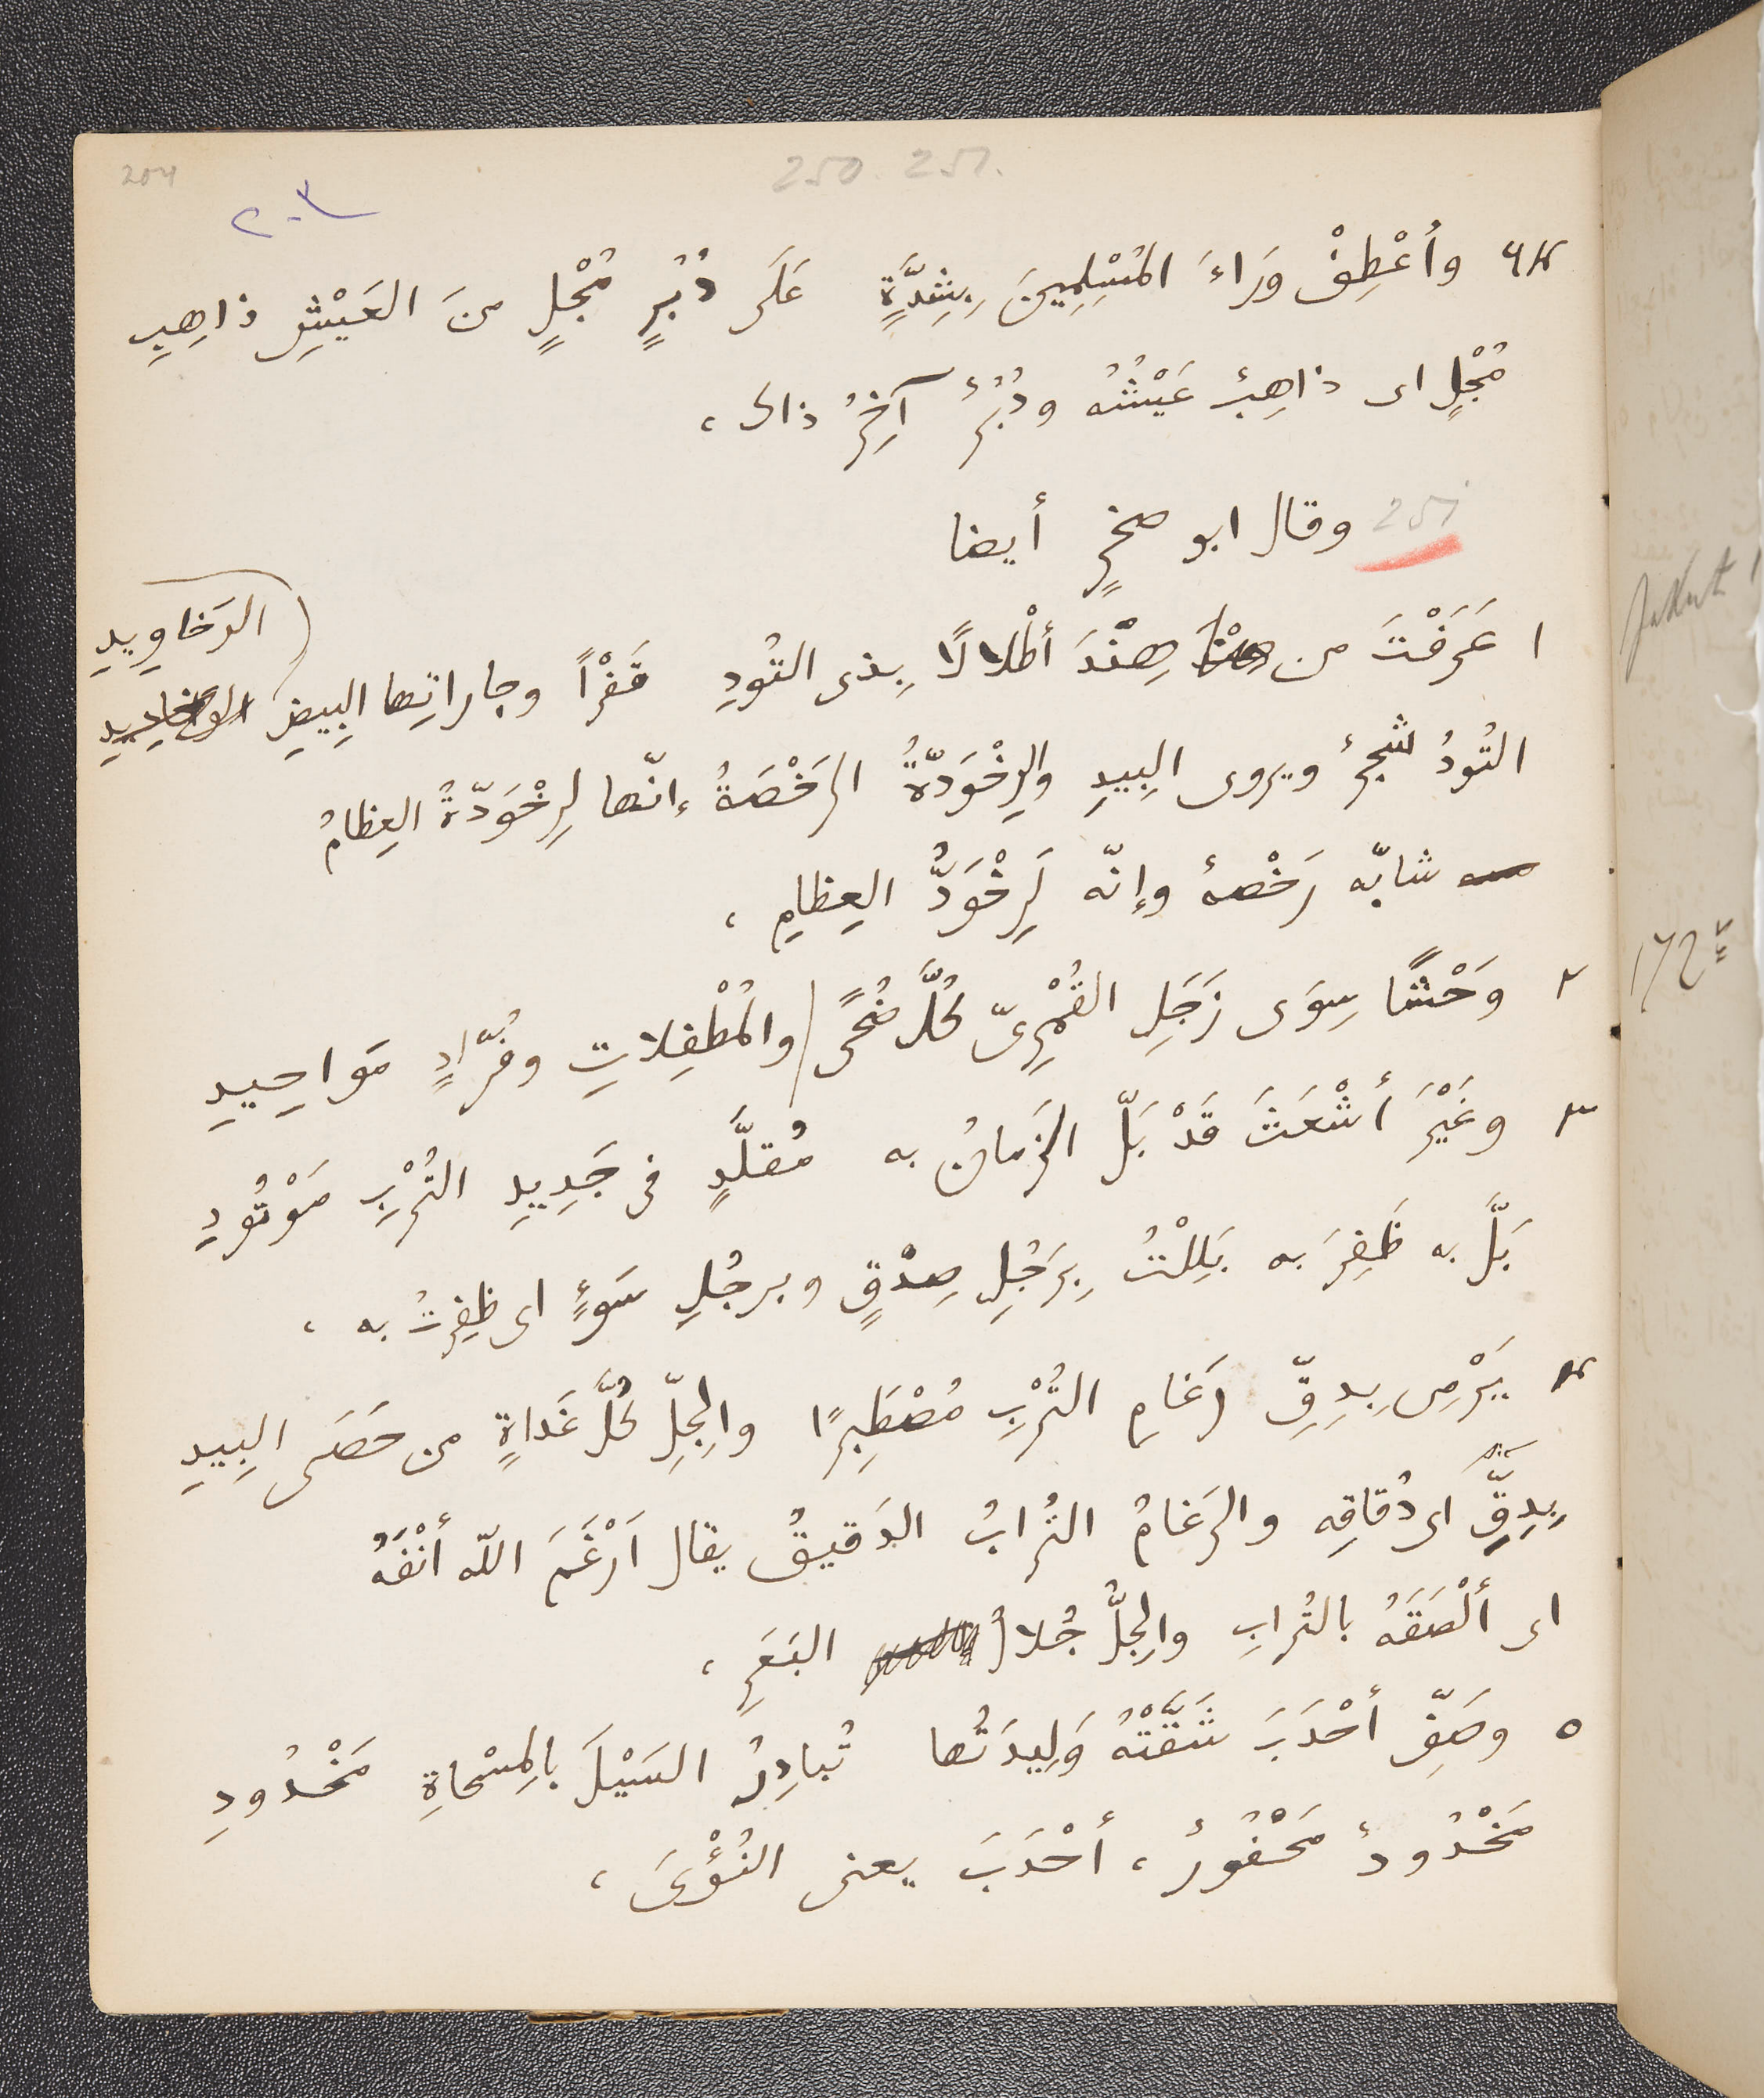 204
250. 251.
٢٠٤
٦٤ وأَعْطِفْ وَرَاءَ المُسْلِمِينَ بِشِدَّةٍ عَلَى دُبُرٍ مُجْلٍ منَ العَيْشِ ذاهِبِ
مُجْلٍ اى ذاهِبٌ عَيْشُهُ ودُبُرٌ آخِرُ ذاك ،
251 وقال ابو صخرٍ أيضا
الرَخاوِيدِ
١ عَرَفْتَ من هِنْدَ أطْلالًا بِذى التُودِ قَفْرًا وجاراتِها البِيضِ
التُودُ شجرٌ ويروى البِيدِ والرِخْوَدّةُ الرَخْصَةُ إنّها لرِخْوَدّةُ العِظامِ
شابّه رَخْصهٌ وإنّه لَرِخْوَدُّ العِظامِ ،
٢ وَحْشًا سِوَى زَجَلِ القُمْرِىّ كُلَّ ضُحًى / والمُطْفِلاتِ وفُرّادٍ مَواحِيدِ
٣ وغَيْرَ أشْعَثَ قَدْ بَلّ الزَمانُ به مُقلَّدٍ فى جَدِيدِ التُرْبِ مَوْتُودِ
بَلَّ به ظَفِرَ به بَلِلْتُ بِرَجُلِ صِدْقٍ وبرجُلِ سَوءٍ اى ظفِرتُ به ،
٤ يَرْمِى بِدِقِّ رَغامِ التُرْبِ مُصْطَبِرًا والجِلِّ كُلَّ غَداةٍ من حَصَى البِيدِ
بِدِقِّ اى دُقاقِه والرَغامُ التُرابُ الدَقيقُ يقال اَرْغَمَ اللّه أنْفَهُ
اى ألْصَقَهُ بالتُرابِ والجِلُّ جُلالُ البَعَرِ ،
٥ وصَفِّ أحْدَبَ شَقَّتْهُ وَلِيدَتُها تُبادِرُ السَيْلَ بالمِسْحاةِ مَخْدُودِ
مَخْدُودٌ مَحْفُورٌ ، أحْدَبَ يعنى النُؤْىَ ،